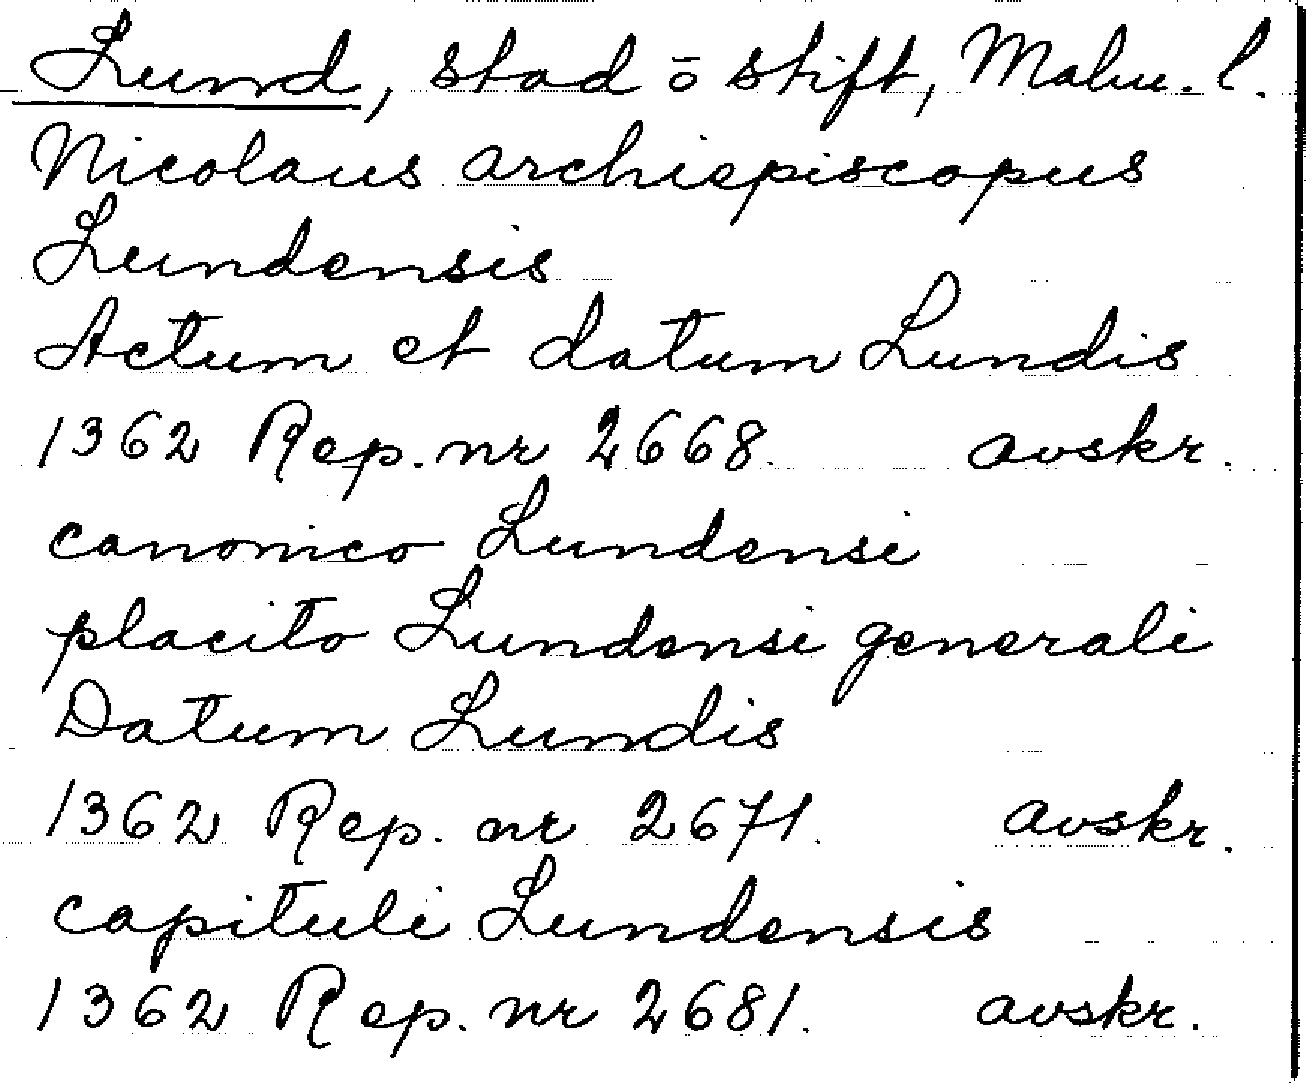 Lund, stad o stift, Malm. l.
Nicolaus archiepiscopus
Lundensis
Actum et datum Lundis
1362 Rep. nr 2668. avskr.
canonico Lundensi
placito Lundensi generali
Datum Lundis
1362 Rep. nr 2671. avskr.
capituli Lundensis
1362 Rep. nr 2681. avskr.